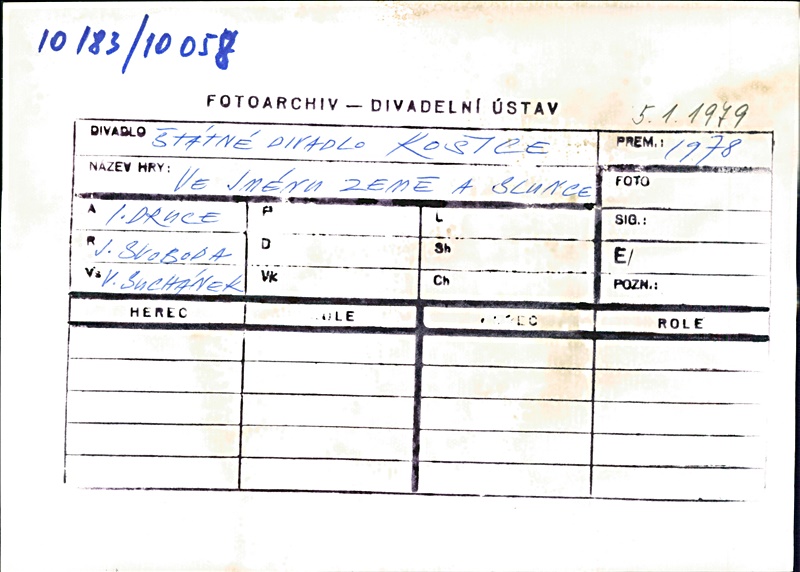 10183/10058
FOTOARCHIV — DIVADELNÍ ÚSTAV
5.1.1979
DIVADLO ŠTÁTNÉ DIVADLO KOŠICE
PREM.: 1978
NÁZEV HRY: VE JMÉNU ZEMĚ A SLUNCE
FOTO
A I. DRUCE
P
L
SIG.:
R J. SVOBODA
D
Sh
E/
Vs V. SUCHÁNEK
Vk
Ch
POZN.:
HEREC
ROLE